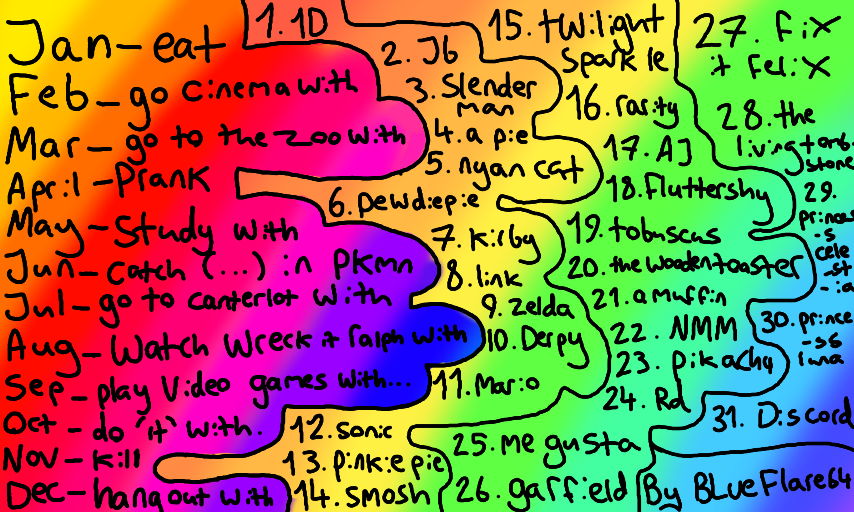 Jan-eat
Feb-go cinema with
Mar-go to the zoo with
April-Prank
May-Study with
Jun-catch (...) in PKmn
Jul-go to canterlot with
Aug-Watch Wreck it ralph with
Sep-play video games with...
Oct-do 'it' with.
Nov-kill
Dec-hangout with
1. 1D
2. Jb
3. Slender
man
4. a pie
5. nyan cat
6. Pewdiepie
7. Kirby
8. link
9. Zelda
10. Derpy
11. Mario
12. sonic
13. pinkie pie
14. smosh
15. twilight
Sparkle
16. rarity
17. AJ
18. Fluttershy
19. tobuscus
20. the woodentoaster
21. a muffin
22. NMM
23. pikachu
24. Rd
25. me gusta
26. garfield
27. Fix
it Felix
28. the
livingtomb
stone
29.
princes
-s
cele
-st
-ia
30. prince
-ss
luna
31. Discord
By BLueFlare64